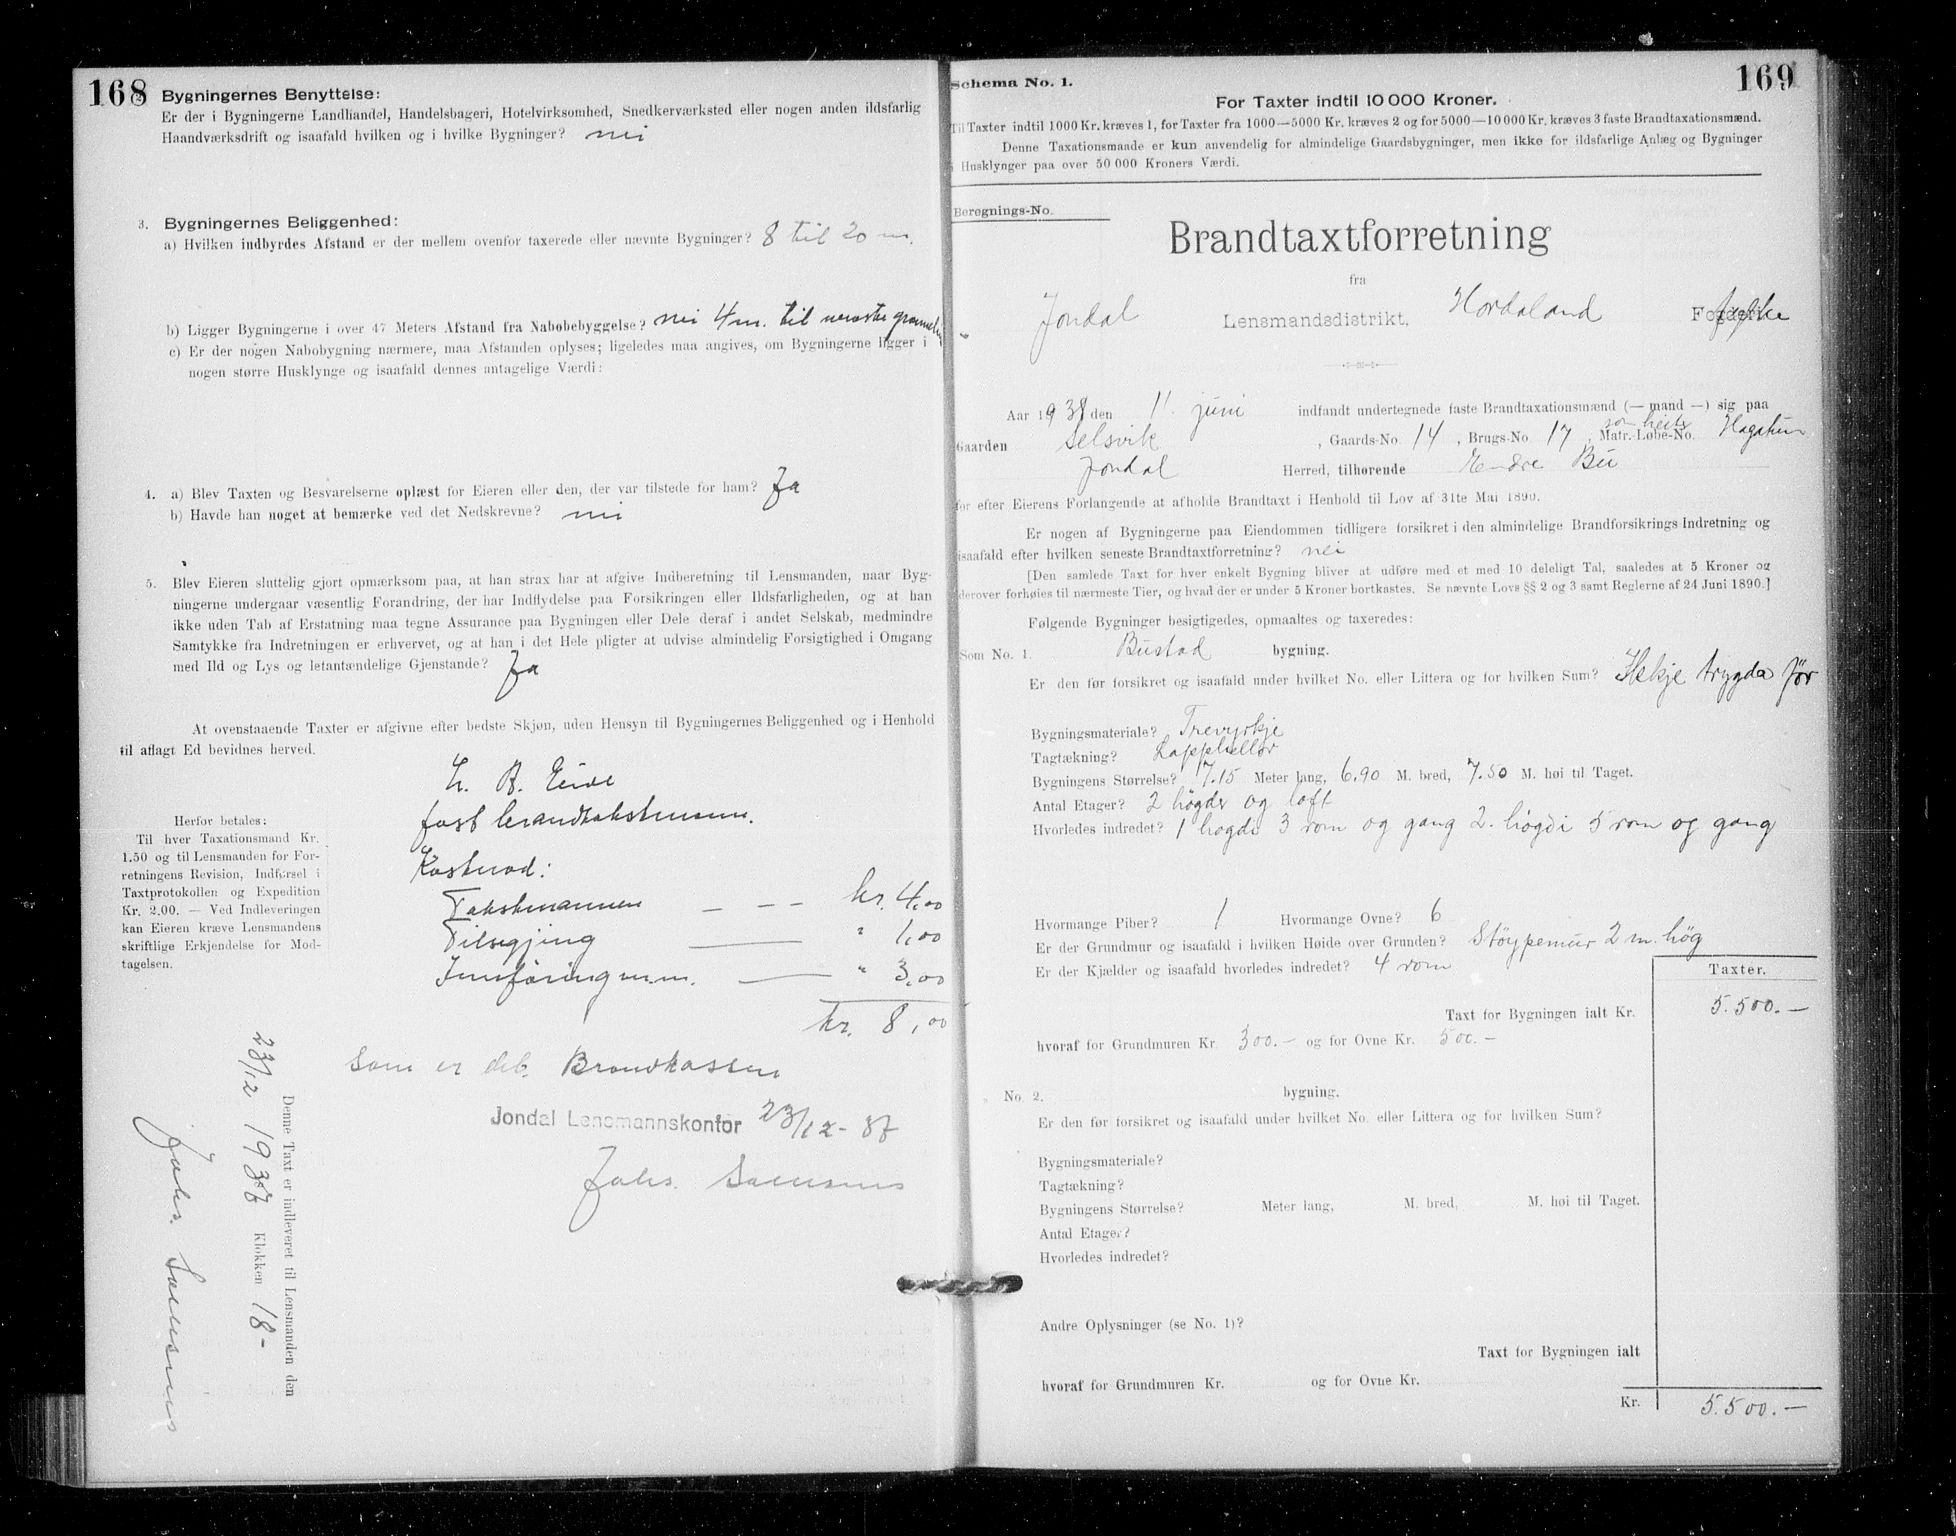 168
Bygningernes Benyttelse:
Er der i Bygningerne Landhandel, Handelsbageri, Hotelvirksomhed, Snedkerværksted eller nogen anden ildsfarlig
Haandværksdrift og isaafald hvilken og i hvilke Bygninger? nei
3. Bygningernes Beliggenhed:
a) Hvilken indbyrdes Afstand er der mellem ovenfor taxerede eller nævnte Bygninger? 8 til 20 m.
b) Ligger Bygningerne i over 47 Meters Afstand fra Nabobebyggelse? nei 4 m. til næraste
c) Er der nogen Nabobygning nærmere, maa Afstanden oplyses; ligeledes maa angives, om Bygningerne ligger i
nogen større Husklynge og isaafald dennes antagelige Værdi:
4. a) Blev Taxten og Besvarelserne oplæst for Eieren eller den, der var tilstede for ham? Ja
b) Havde han noget at bemærke ved det Nedskrevne? nei
5. Blev Eieren sluttelig gjort opmærksom paa, at han strax har at afgive Indberetning til Lensmanden, naar Byg-
ningerne undergaar væsentlig Forandring, der har Indflydelse paa Forsikringen eller Ildsfarligheden, og at han
ikke uden Tab af Erstatning maa tegne Assurance paa Bygningen eller Dele deraf i andet Selskab, medmindre
Samtykke fra Indretningen er erhvervet, og at han i det Hele pligter at udvise almindelig Forsigtighed i Omgang
med Ild og Lys og letantændelige Gjenstande? Ja
At ovenstaaende Taxter er afgivne efter bedste Skjøn, uden Hensyn til Bygningernes Beliggenhed og i Henhold
til aflagt Ed bevidnes herved.
B. Eide
fast brandtakstmann.
Herfor betales:
Til hver Taxationsmand Kr.
1.50 og til Lensmanden for For-
retningens Revision, Indførsel i
Taxtprotokollen og Expedition
Kr. 2.00. — Ved Indleveringen
kan Eieren kræve Lensmandens
skriftlige Erkjendelse for Mod-
tagelsen.
Kostnad:
Takstmannen — — — kr. 4,00
Tilsegjing — " 1,00
Innføring m.m. — " 3,00
kr. 8,00
Som er deb. Brandkassen
Jondal Lensmannskontor 23/12-37
Johs. Samsons
Denne Taxt er indleveret til Lensmanden den
23/12 1937 Klokken 18-
Johs. Samsons
169
Schema No. 1.
For Taxter indtil 10 000 Kroner.
Til Taxter indtil 1000 Kr. kræves 1, for Taxter fra 1000—5000 Kr. kræves 2 og for 5000—10 000 Kr. kræves 3 faste Brandtaxationsmænd.
Denne Taxationsmaade er kun anvendelig for almindelige Gaardsbygninger, men ikke for ildsfarlige Anlæg og Bygninger
i Husklynger paa over 50 000 Kroners Værdi.
Beregnings-No.
Brandtaxtforretning
fra
Jondal Lensmandsdistrikt, Hordaland fylke
Aar 1938 den 11. juni indfandt undertegnede faste Brandtaxationsmænd (— mand —) sig paa
Gaarden Selsvik, Gaards-No. 14, Brugs-No. 17, Matr.-Løbe-No. som heiter Hagatun
Jondal Herred, tilhørende Endre Bu
for efter Eierens Forlangende at afholde Brandtaxt i Henhold til Lov af 31te Mai 1890.
Er nogen af Bygningerne paa Eiendommen tidligere forsikret i den almindelige Brandforsikrings-Indretning og
isaafald efter hvilken seneste Brandtaxtforretning? nei
[Den samlede Taxt for hver enkelt Bygning bliver at udføre med et med 10 deleligt Tal, saaledes at 5 Kroner og
derover forhøies til nærmeste Tier, og hvad der er under 5 Kroner bortkastes. Se nævnte Lovs §§ 2 og 3 samt Reglerne af 24 Juni 1890.]
Følgende Bygninger besigtigedes, opmaaltes og taxeredes:
Som No. 1. Bustad bygning.
Er den før forsikret og isaafald under hvilket No. eller Littera og for hvilken Sum? Ikkje trygda før
Bygningsmateriale? Trevyrkje
Tagtækning? Lapphellor
Bygningens Størrelse? 7.15 Meter lang, 6.90 M. bred, 7.50 M. høi til Taget.
Antal Etager? 2 høgder og loft
Hvorledes indredet? 1 høgdi 3 rom og gang 2. høgdi 5 rom og gang
Hvormange Piber? 1 Hvormange Ovne? 6
Er der Grundmur og isaafald i hvilken Høide over Grunden? Støypemur 2 m. høg
Er der Kjælder og isaafald hvorledes indredet? 4 rom
Taxter.
Taxt for Bygningen ialt Kr. 5.500.—
hvoraf for Grundmuren Kr. 300.— og for Ovne Kr. 500.—
No. 2. bygning.
Er den før forsikret og isaafald under hvilket No. eller Littera og for hvilken Sum?
Bygningsmateriale?
Tagtækning?
Bygningens Størrelse? Meter lang, M. bred, M. høi til Taget.
Antal Etager?
Hvorledes indredet?
Andre Oplysninger (se No. 1)?
Taxt for Bygningen ialt
hvoraf for Grundmuren Kr. og for Ovne Kr.
Kr. 5.500.—